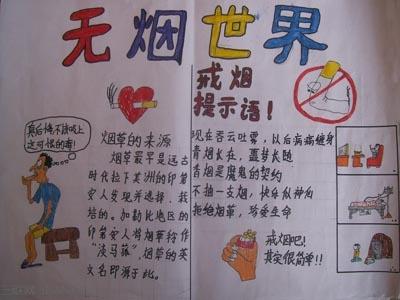 无烟世界
戒烟
提示语！
真后悔不该吸上
这可恨的毒！
烟草的来源
烟草最早是远古
时代拉丁美洲的印第
安人发现并选择、栽
培的。加勒比地区的
印第安人将烟草称作
“淡马菰”，烟草的英
文名即源于此。
现在吞云吐雾，以后病痛缠身
青烟长在，噩梦长随
青烟是魔鬼的契约
不抽一支烟，快乐似神仙
拒绝烟草，珍爱生命
戒烟吧！
其实很简单！！